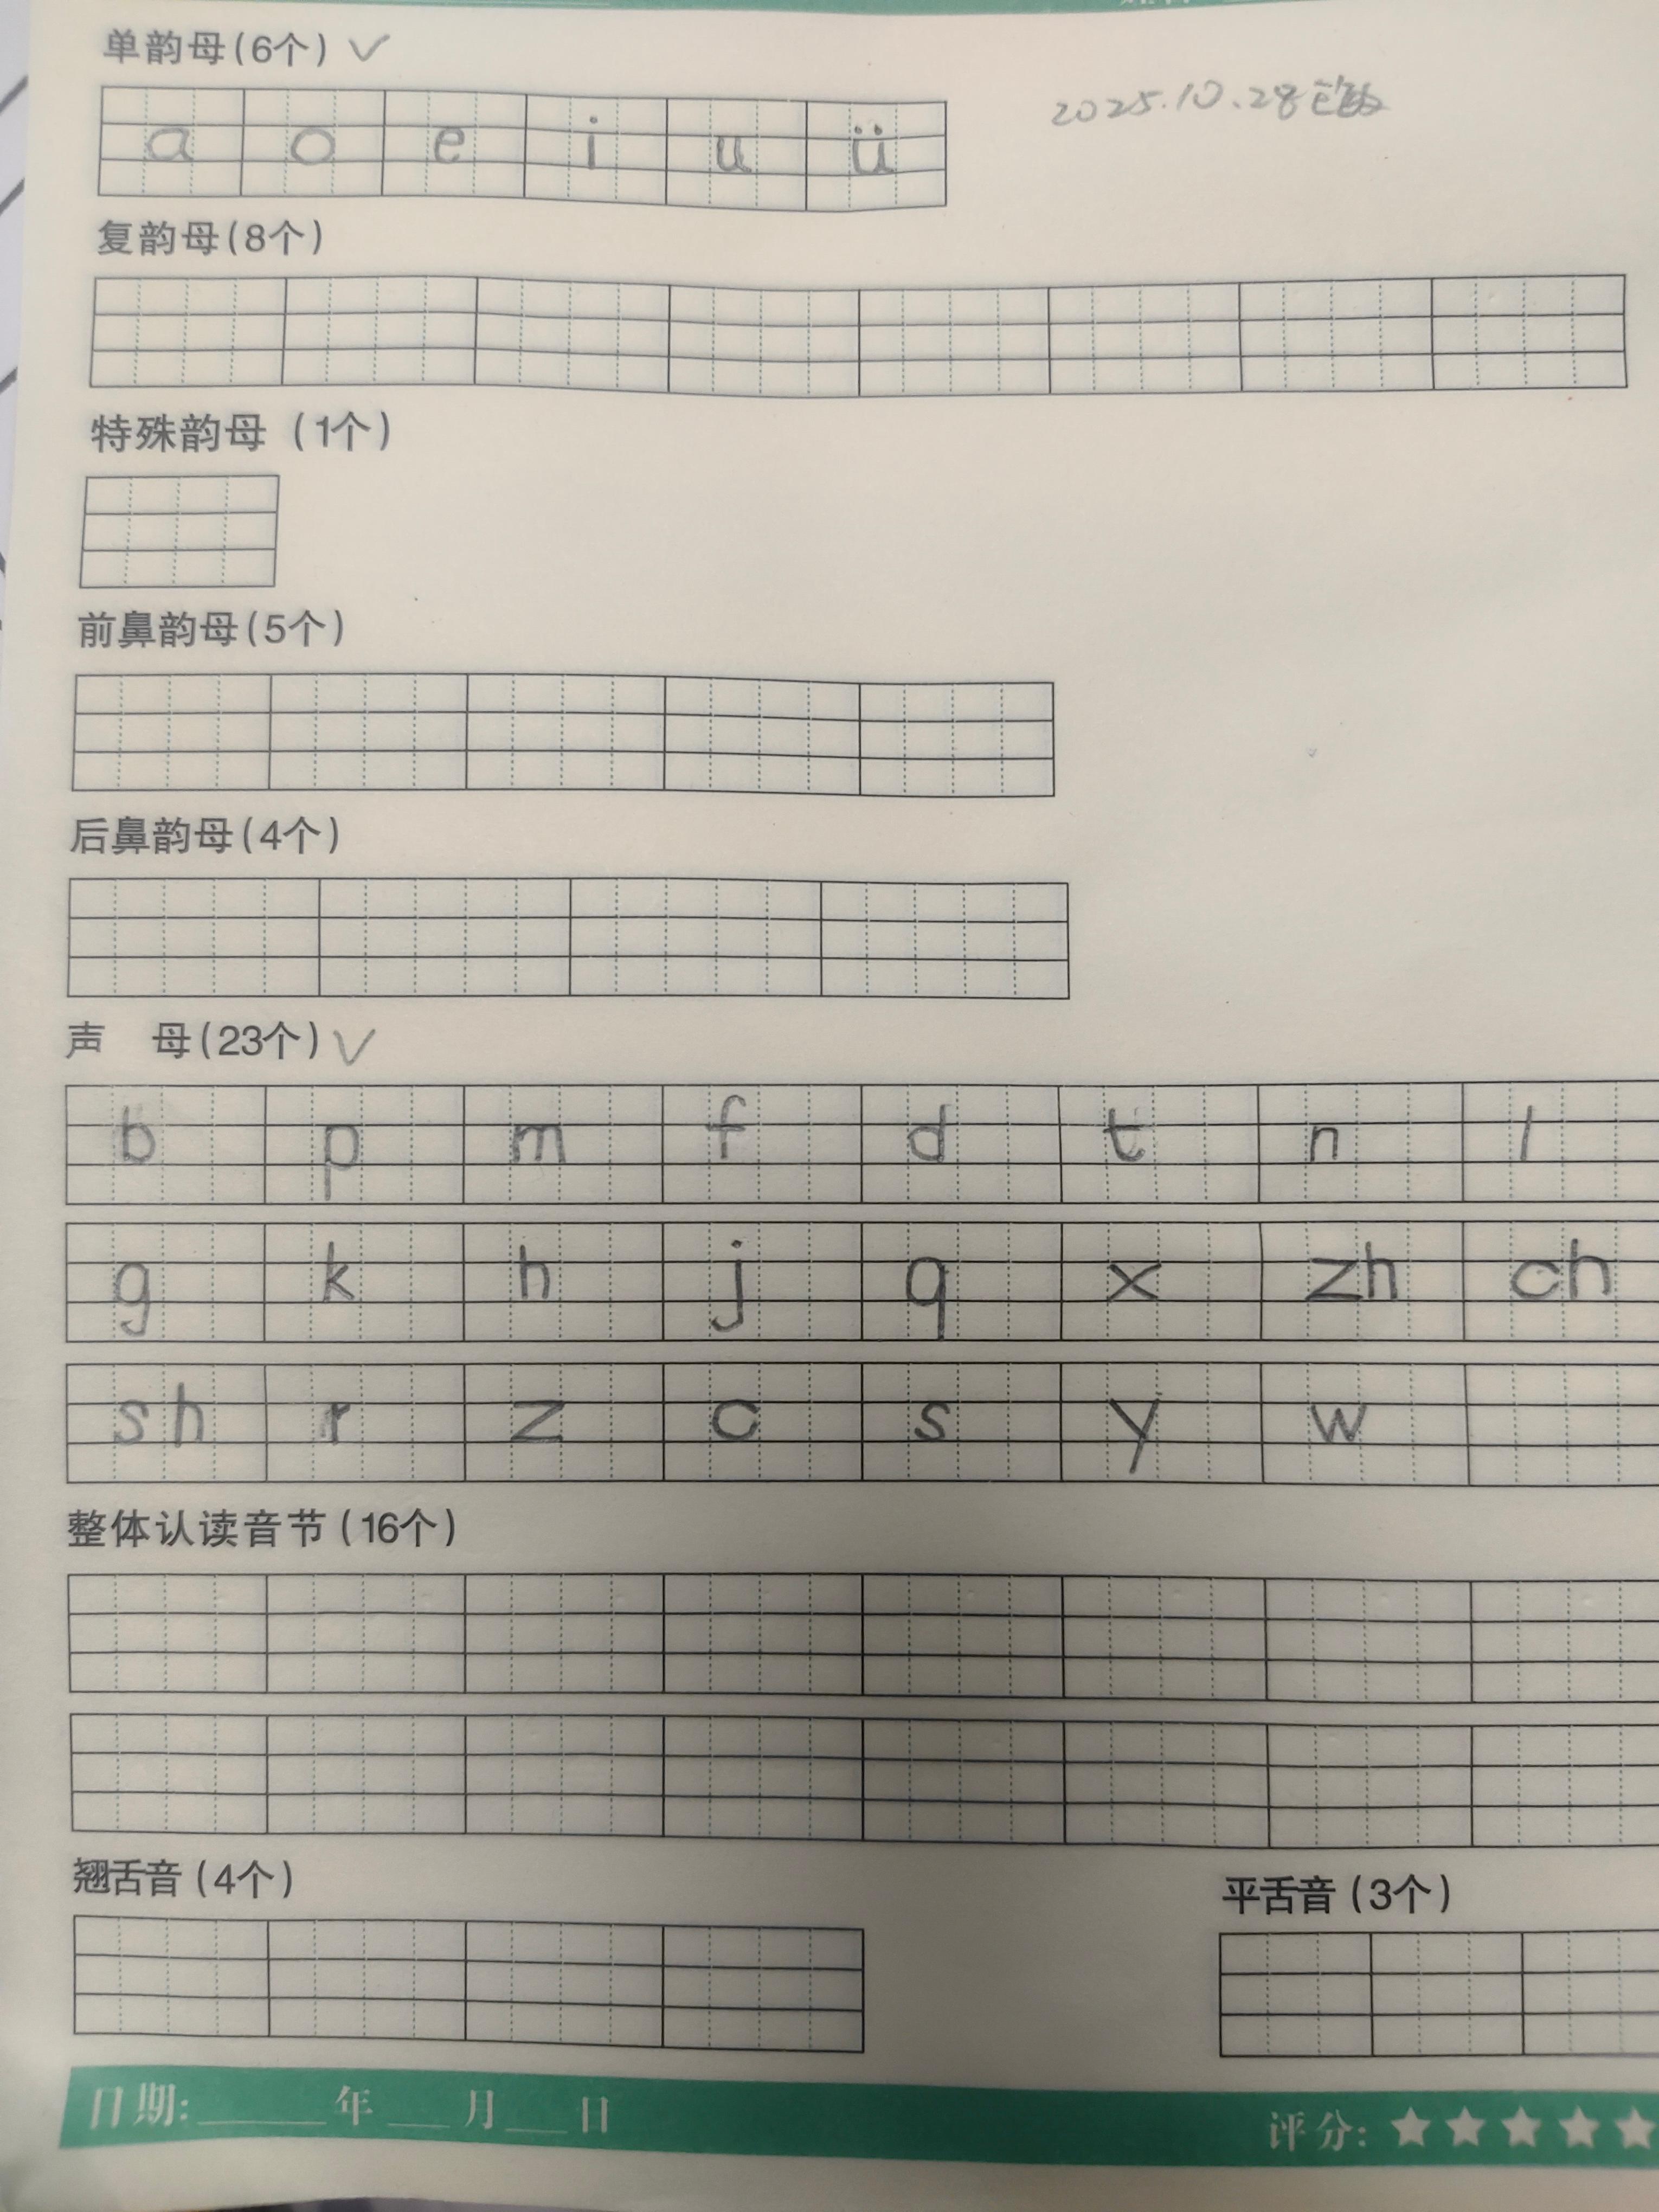 单韵母(6个) ✓
2025.10.28
a o e i u ü
复韵母(8个)
特殊韵母 (1个)
前鼻韵母(5个)
后鼻韵母(4个)
声 母(23个) ✓
b p m f d t n l
g k h j q x zh ch
sh r z c s y w
整体认读音节(16个)
翘舌音(4个)
平舌音(3个)
日期:______年___月___日
评分:★★★★★